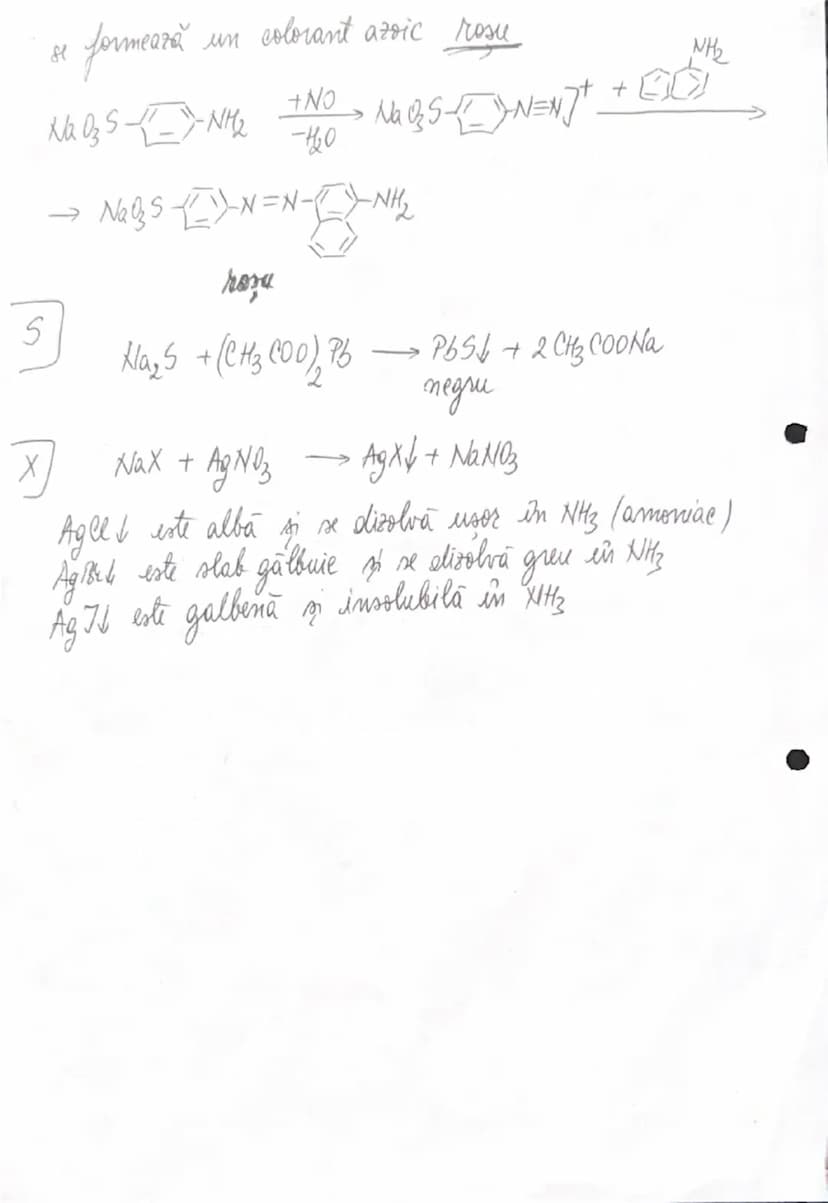 se formează un colorant azoic roșu
NaO3S-⌬-NH2 +NO/-H2O → NaO3S-⌬-N≡N]+ + NH2 →
→ NaO3S-⌬-N=N-⌬-NH2
roșu
S
Na2S + (CH3COO)2Pb → PbS↓ + 2CH3COONa
negru
X NaX + AgNO3 → AgX↓ + NaNO3
AgCl↓ este albă și se dizolvă ușor în NH3 (amoniac)
AgBr↓ este slab gălbuie și se dizolvă greu în NH3
AgI↓ este galbenă și insolubilă în NH3